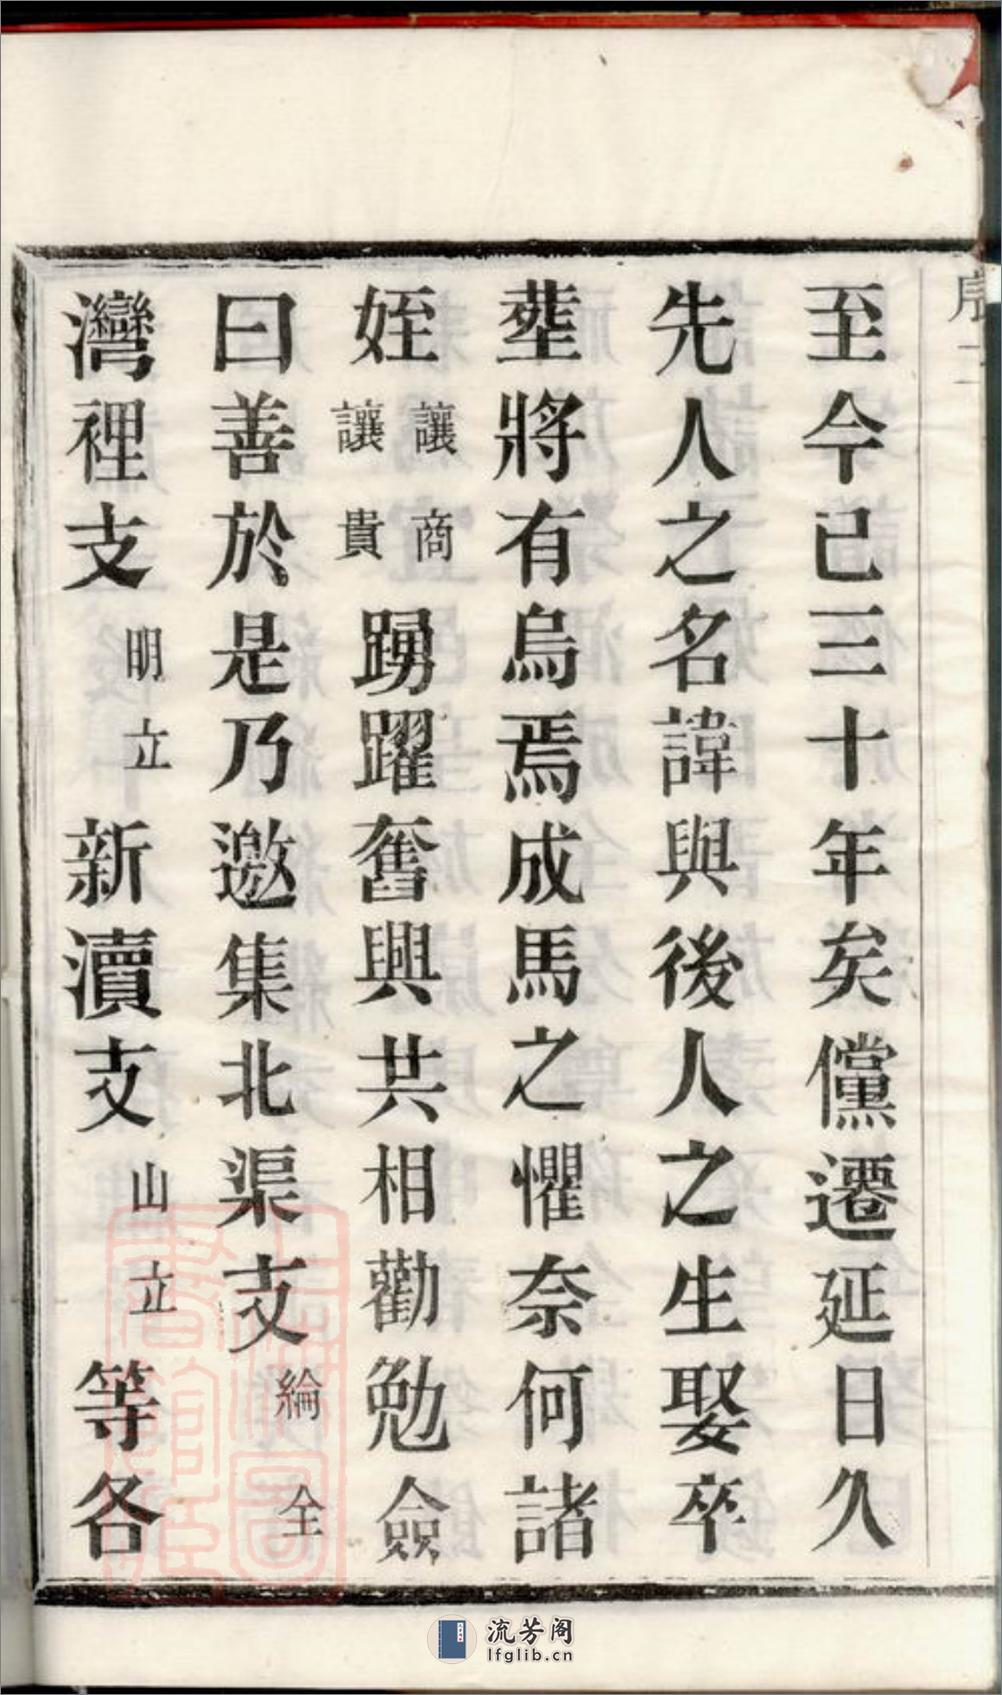 至今已三十年矣儻遷延日久
先人之名諱與後人之生娶卒
塟將有烏焉成馬之懼奈何諸
姪讓商讓貴踴躍奮興共相勸勉僉
曰善於是乃邀集北渠支綸全
灣裡支明立新瀆支山立等各
流芳阁
lfglib.cn